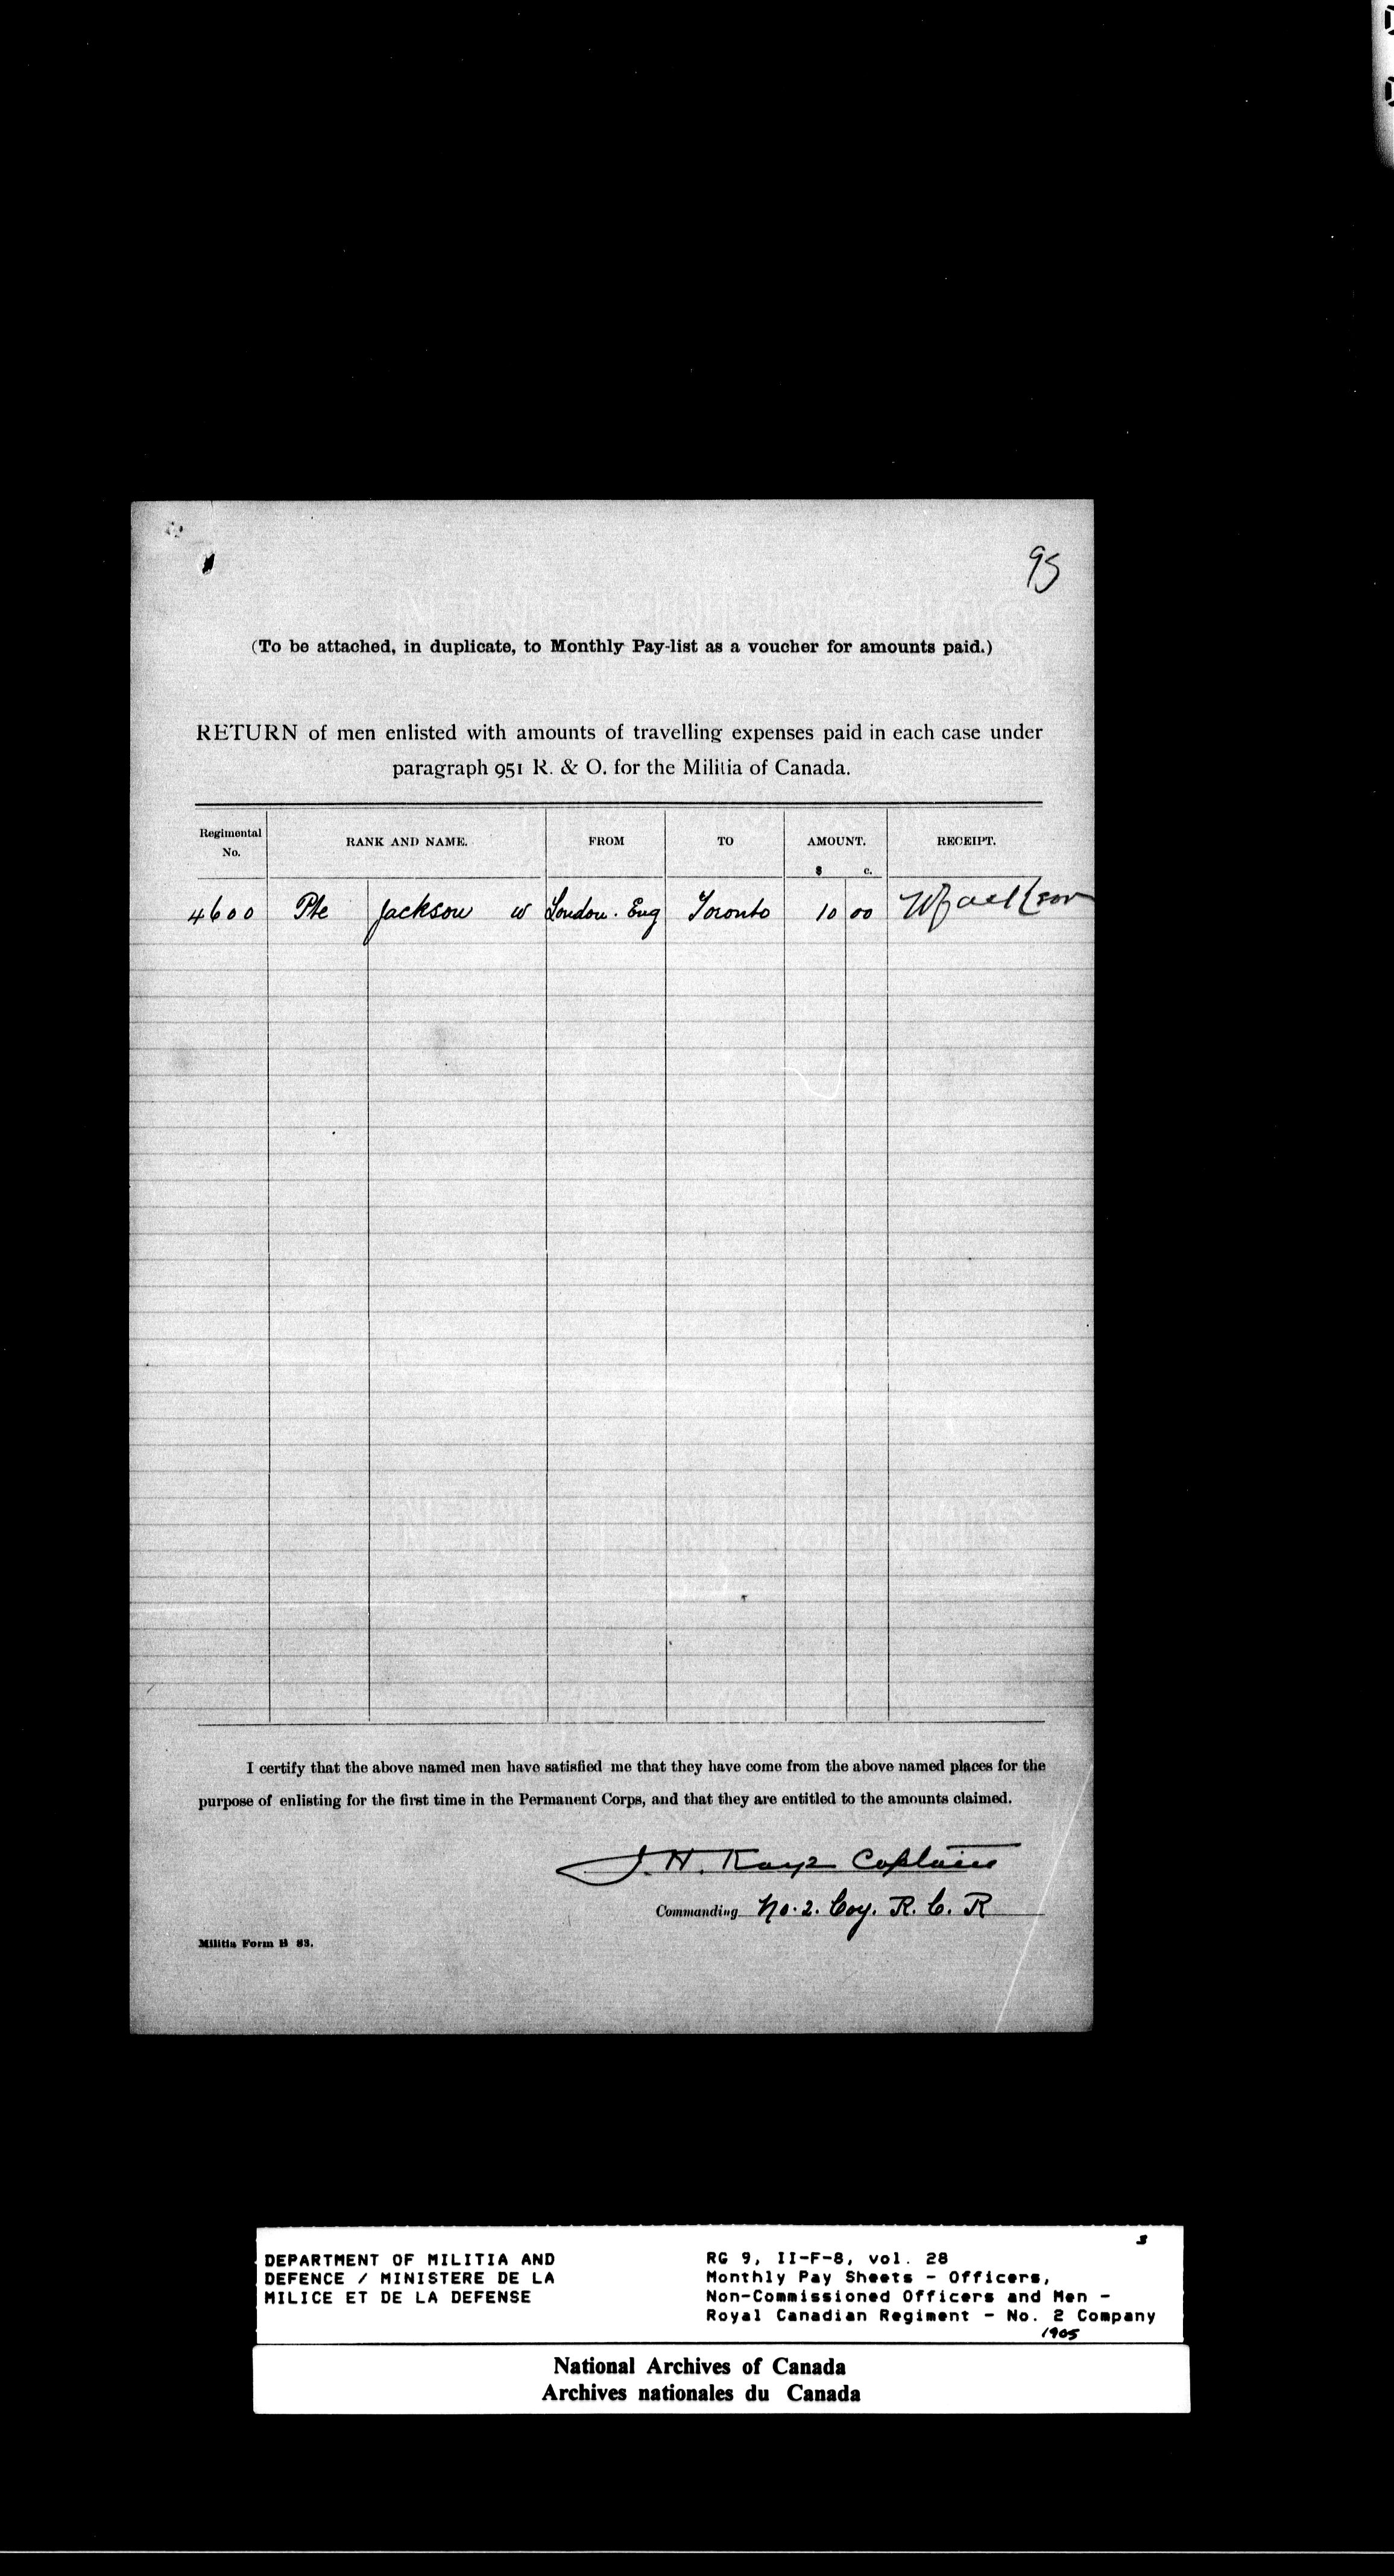 95
(To be attached, in duplicate, to Monthly Pay-list as a voucher for amounts paid.)
RETURN of men enlisted with amounts of travelling expenses paid in each case under
paragraph 951 R. & O. for the Militia of Canada.
Regimental No. RANK AND NAME. FROM TO AMOUNT. RECEIPT.
$ c.
4600 Pte Jackson W London. Eng Toronto 10 00 W Jackson
I certify that the above named men have satisfied me that they have come from the above named places for the
purpose of enlisting for the first time in the Permanent Corps, and that they are entitled to the amounts claimed.
J. H. Kaye Captain
Commanding No. 2. Coy. R. C. R
Militia Form B 83.
3
DEPARTMENT OF MILITIA AND
DEFENCE / MINISTERE DE LA
MILICE ET DE LA DEFENSE
RG 9, II-F-8, vol. 28
Monthly Pay Sheets - Officers,
Non-Commissioned Officers and Men -
Royal Canadian Regiment - No. 2 Company
1905
National Archives of Canada
Archives nationales du Canada